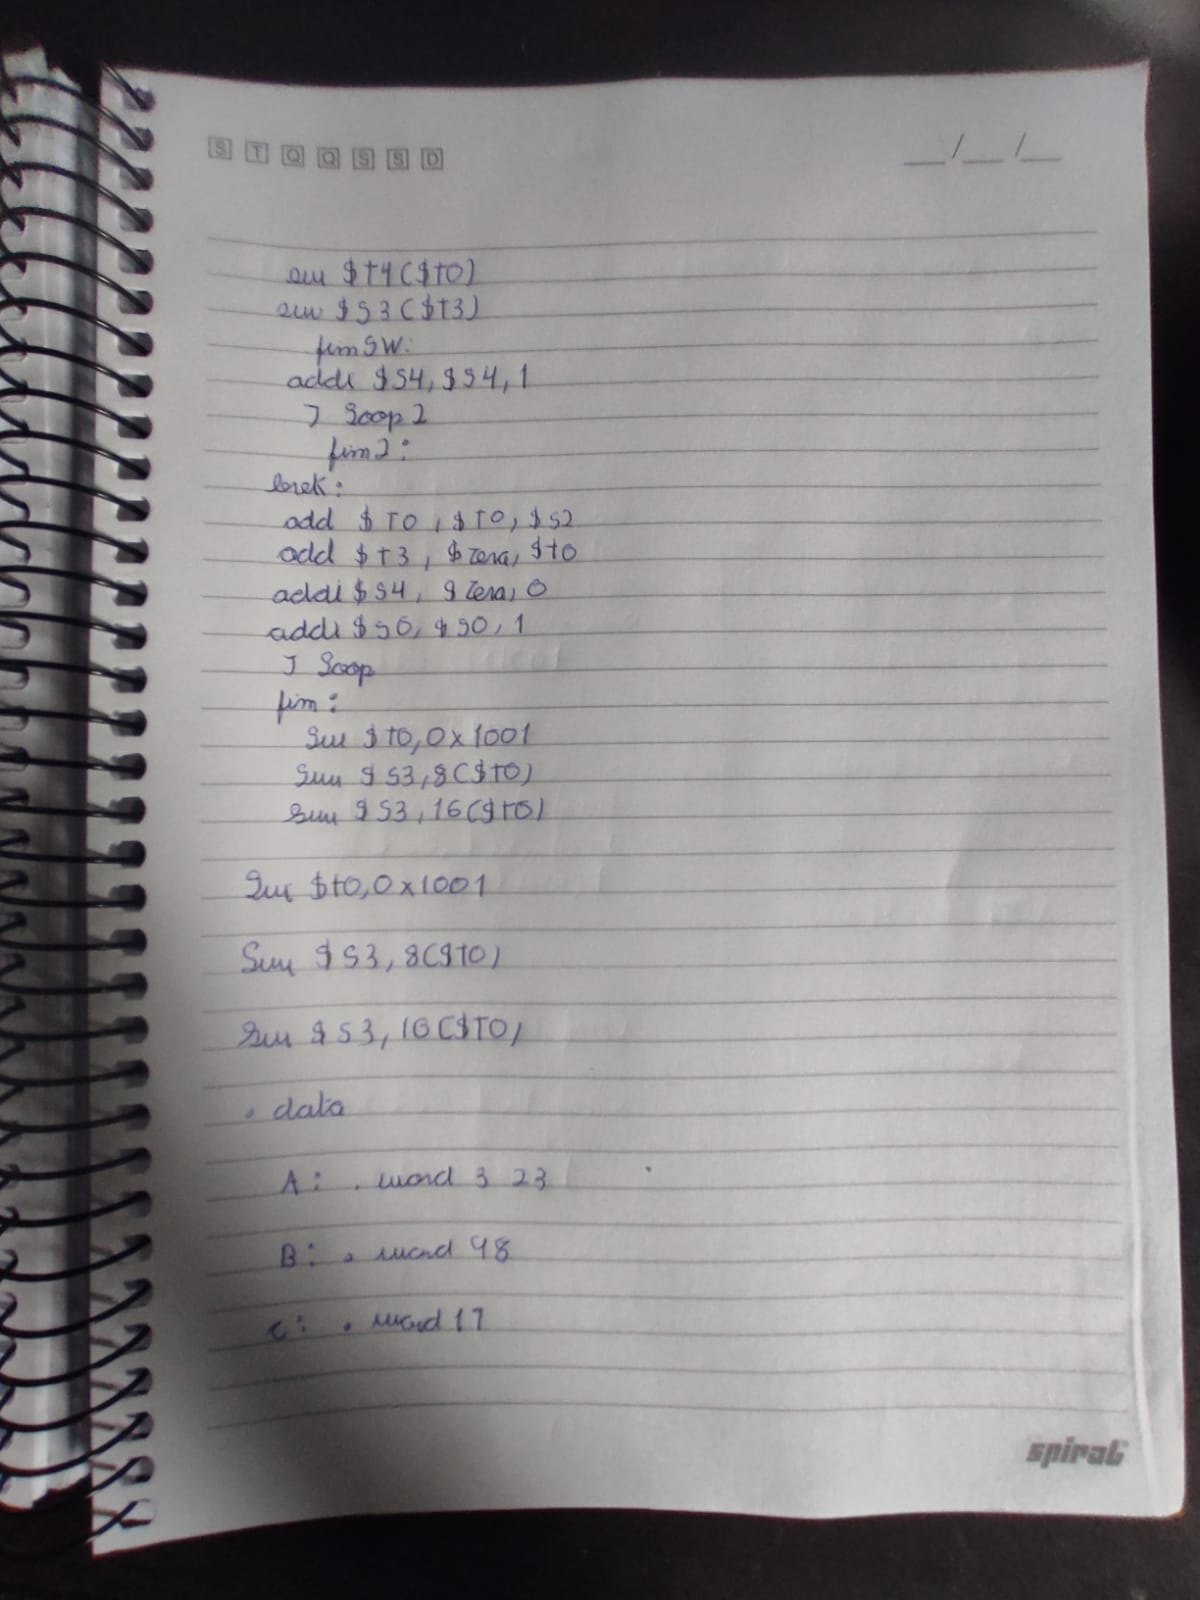 S T Q Q S S D
__/__/__
sw $t4($t0)
sw $S3($t3)
fimSW:
addi $S4, $S4, 1
J Loop2
fim2:
brek:
add $T0, $T0, $S2
add $t3, $zero, $t0
addi $S4, $zero, 0
addi $S0, $S0, 1
J Loop
fim:
lui $t0, 0x1001
sw $S3, 8($t0)
sw $S3, 16($t0)
lui $t0, 0x1001
sw $S3, 8($T0)
sw $S3, 16($T0)
.data
A: .word 3 23
B: .word 98
C: .word 17
spiral